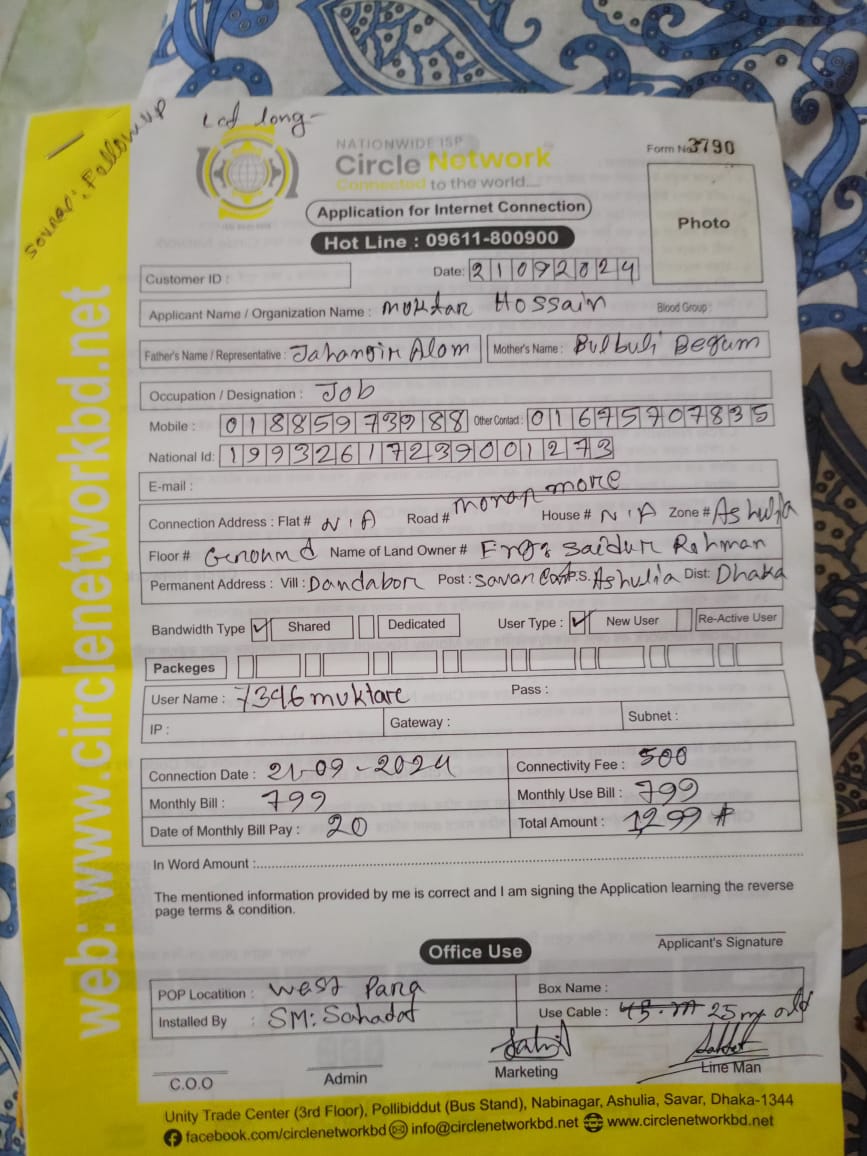 Lcd long-
Source: Followup
NATIONWIDE ISP
Circle Network
Connected to the world....
Form No 3790
Application for Internet Connection
Photo
Hot Line : 09611-800900
Customer ID :
Date: 21092024
Applicant Name / Organization Name : Moktar Hossain Blood Group:
Father's Name / Representative : Jahangir Alom Mother's Name : Bulbuli Begum
Occupation / Designation : Job
Mobile : Other Contact :
National Id:
E-mail :
Connection Address : Flat # N/A Road # more House # N/A Zone # Ashulia
Floor # Ground Name of Land Owner # Engr Saidur Rohman
Permanent Address : Vill : Dandabor Post : Savar Cant P.S. Ashulia Dist: Dhaka
Bandwidth Type ✓ Shared Dedicated User Type : ✓ New User Re-Active User
Packeges
User Name : 7396muktare Pass :
IP : Gateway : Subnet :
Connection Date : 21-09-2024 Connectivity Fee : 500
Monthly Bill : 799 Monthly Use Bill : 799
Date of Monthly Bill Pay : 20 Total Amount : 1299
In Word Amount :
The mentioned information provided by me is correct and I am signing the Application learning the reverse
page terms & condition.
Applicant's Signature
Office Use
POP Locatition : West Para Box Name :
Installed By : SM: Sahadat Use Cable : 25 m old
C.O.O Admin Marketing Line Man
Unity Trade Center (3rd Floor), Pollibiddut (Bus Stand), Nabinagar, Ashulia, Savar, Dhaka-1344
facebook.com/circlenetworkbd info@circlenetworkbd.net www.circlenetworkbd.net
web: www.circlenetworkbd.net